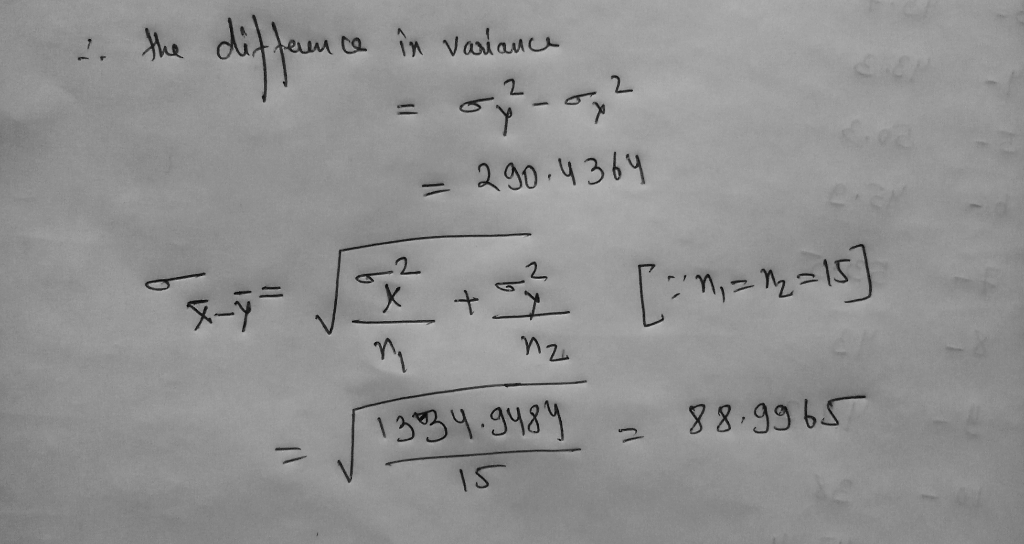 ∴ the difference in variance
= σ_y² - σ_x²
= 290.4364
σ_x̄-ȳ = √(σ_x²/n₁ + σ_y²/n₂) [∵ n₁ = n₂ = 15]
= √(/15) = 88.9965